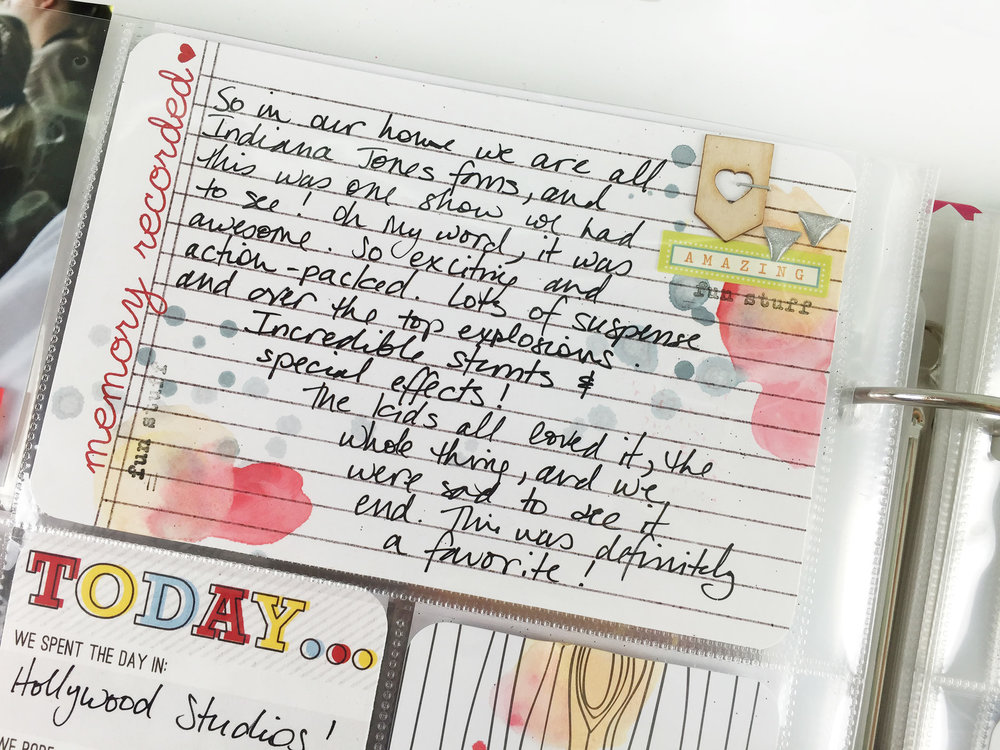 memory recorded
So in our home we are all
Indiana Jones fans, and
this was one show we had
to see! Oh my word, it was
awesome. So exciting and
action-packed. Lots of suspense
and over the top explosions.
Incredible stunts &
special effects!
The kids all loved it, the
whole thing, and we
were sad to see it
end. This was definitely
a favorite!
AMAZING
fun stuff
fun stuff
TODAY...
WE SPENT THE DAY IN:
Hollywood Studios!